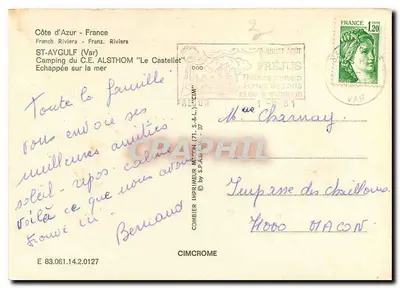 Côte d'Azur - France
French Riviera - Franz. Riviera
ST-AYGULF (Var)
Camping du C.E. ALSTHOM "Le Castellet"
Echappée sur la mer
FRANCE
1,20
FRÉJUS
VAR
Toute la famille
vous envoie ses
meilleures amitiés
soleil - repos - calme
voilà ce que nous avons
trouvé ici -
Bernard
Mme Charnay
Impasse des chaillouns
71000 MACON
COMBIER IMPRIMEUR MACON (71, S.-&-L.) "CIM"
© by S.P.A.D.E.M.
CIMCROME
E 83.061.14.2.0127
CPAPHIL